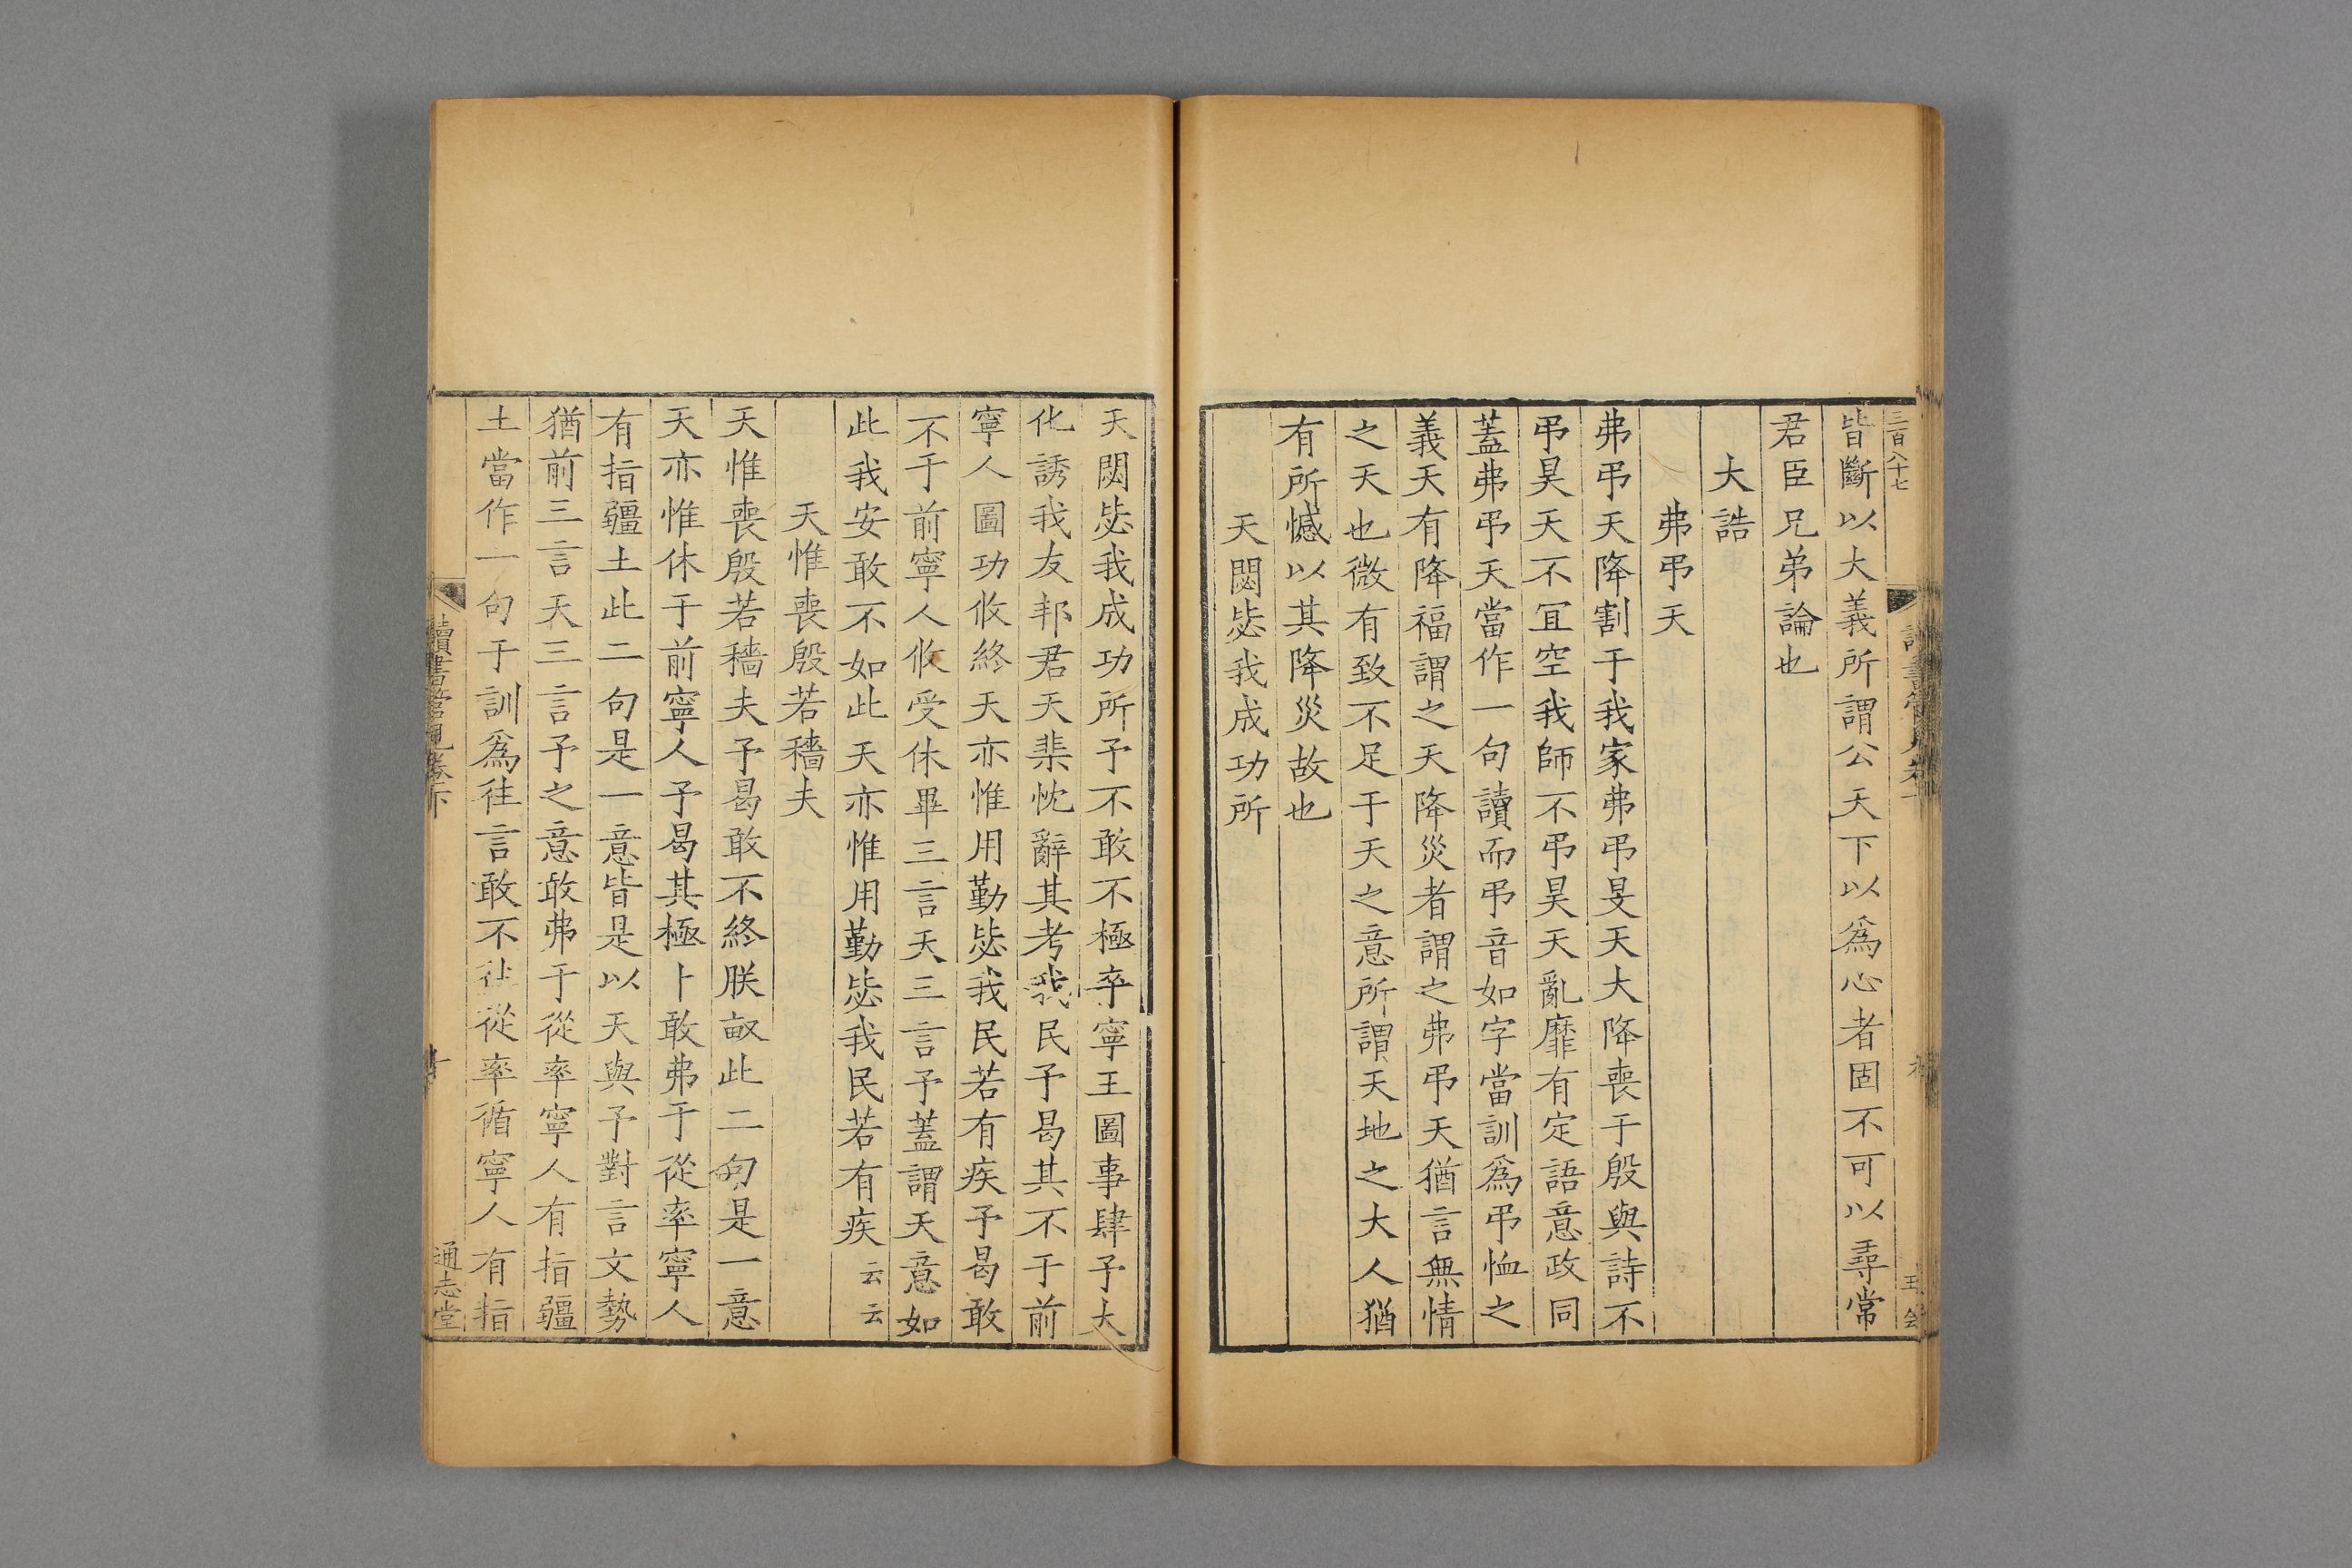 三百八十七
皆斷以大義所謂公天下以爲心者固不可以尋常
君臣兄弟論也
大誥
弗弔天
弗弔天降割于我家弗弔旻天大降喪于殷與詩不
弔昊天不宜空我師不弔昊天亂靡有定語意政同
蓋弗弔天當作一句讀而弔音如字當訓爲弔恤之
義天有降福謂之天降災者謂之弗弔天猶言無情
之天也微有致不足于天之意所謂天地之大人猶
有所憾以其降災故也
天閟毖我成功所
天閟毖我成功所予不敢不極卒寧王圖事肆予大
化誘我友邦君天棐忱辭其考我民予曷其不于前
寧人圖功攸終天亦惟用勤毖我民若有疾予曷敢
不于前寧人攸受休畢三言天三言予蓋謂天意如
此我安敢不如此天亦惟用勤毖我民若有疾云云
天惟喪殷若穡夫
天惟喪殷若穡夫予曷敢不終朕畝此二句是一意
天亦惟休于前寧人予曷其極卜敢弗于從率寧人
有指疆土此二句是一意皆是以天與予對言文勢
猶前三言天三言予之意敢弗于從率寧人有指疆
土當作一句于訓爲往言敢不往從率循寧人有指
讀書管見卷下
通志堂